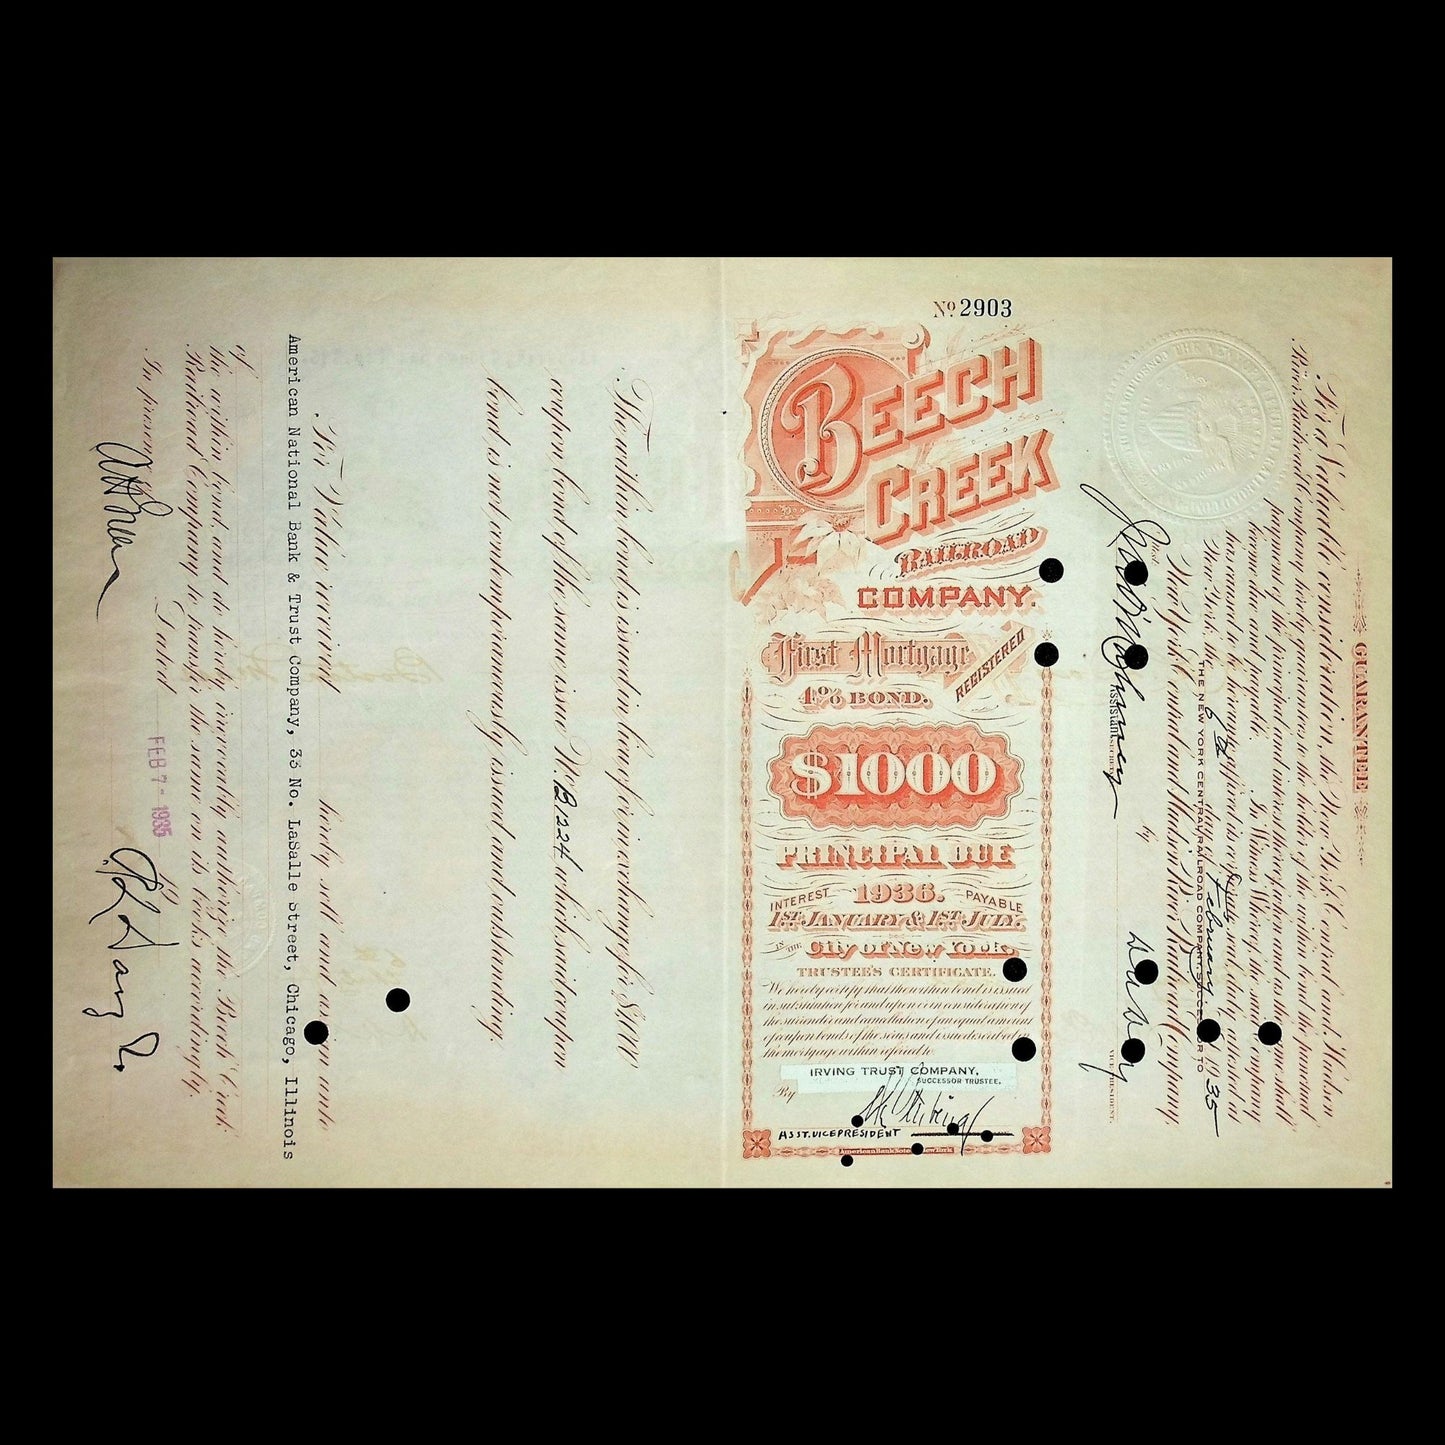 Nº 2903
BEECH
CREEK
RAILROAD
COMPANY.
First Mortgage
REGISTERED
4% BOND.
$1000
PRINCIPAL DUE
INTEREST 1936. PAYABLE
1ST JANUARY & 1ST JULY.
IN THE City of New York.
TRUSTEE'S CERTIFICATE.
We hereby certify that the within bond is issued
in substitution for and upon consideration of
the surrender and cancellation of an equal amount
of coupon bonds of the series and issue described in
the mortgage within referred to.
IRVING TRUST COMPANY,
SUCCESSOR TRUSTEE.
By
ASST. VICE PRESIDENT
American Bank Note New York
GUARANTEE
For a Valuable consideration, the New York Central and Hudson
River Railroad Company hereby guarantees to the holder of the within bond the punctual
payment of the principal and interest thereof when and as the same shall
become due and payable. In Witness Whereof, the said company
has caused to be hereunto affixed its corporate seal duly attested at
New York, the 6th day of February 1935
THE NEW YORK CENTRAL RAILROAD COMPANY, SUCCESSOR TO
New York Central and Hudson River Railroad Company,
Attest
by
Assistant SECRETARY
VICE PRESIDENT.
The within bond is issued in lieu of or in exchange for $1,000
coupon bond of the same issue Nº B224 which said coupon
bond is not contemporaneously issued and outstanding.
For Value received hereby sell and assign unto
American National Bank & Trust Company, 33 No. LaSalle Street, Chicago, Illinois
of
the within bond, and do hereby irrevocably authorize the Beech Creek
Railroad Company to transfer the same on its books accordingly.
Dated FEB 7 - 1935 By
In presence